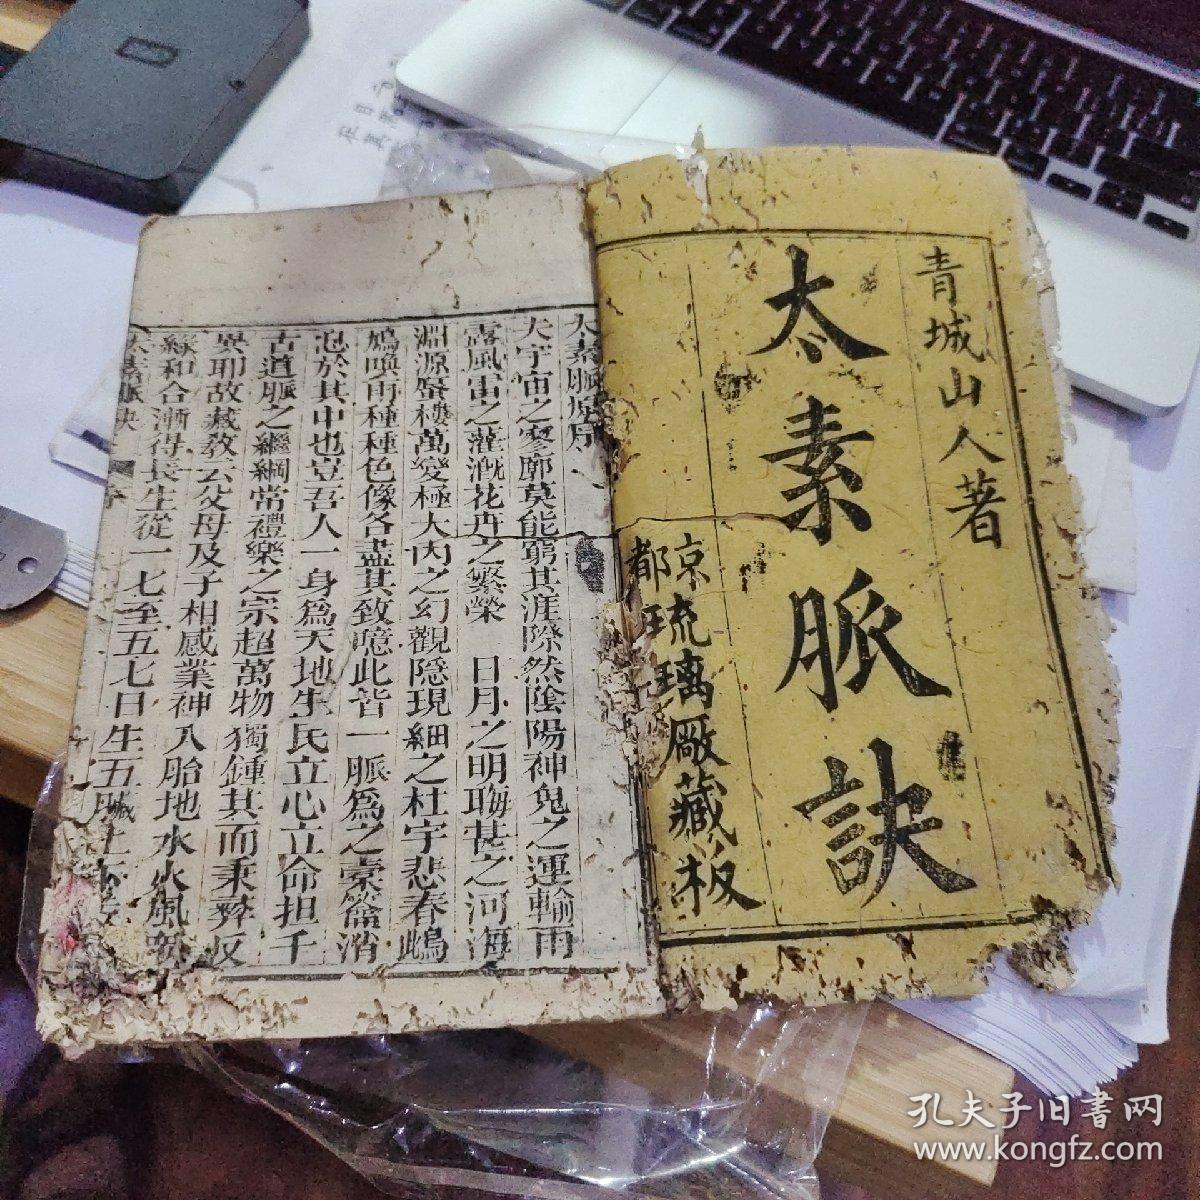 青城山人著
太素脈訣
京都琉璃厰藏板
太素脈原序
大宇宙之寥廓莫能窮其涯際然陰陽神鬼之運輸雨
露風雷之灌溉花卉之繁榮 日月之明晦甚之河海
淵源蜃樓萬變極大內之幻觀隱現細之杜宇悲春鴟
鳩喚雨種種色像各盡其致噫此皆一脈爲之橐籥消
息於其中也豈吾人一身爲天地生民立心立命担千
古道脈之繼綱常禮樂之宗超萬物獨鍾其而秉彝反
異耶故藏教云父母及子相感業神入胎地水火風
緣和合漸得長生從一七至五七日生五臟
太素脈訣 序
孔夫子旧書网
www.kongfz.com